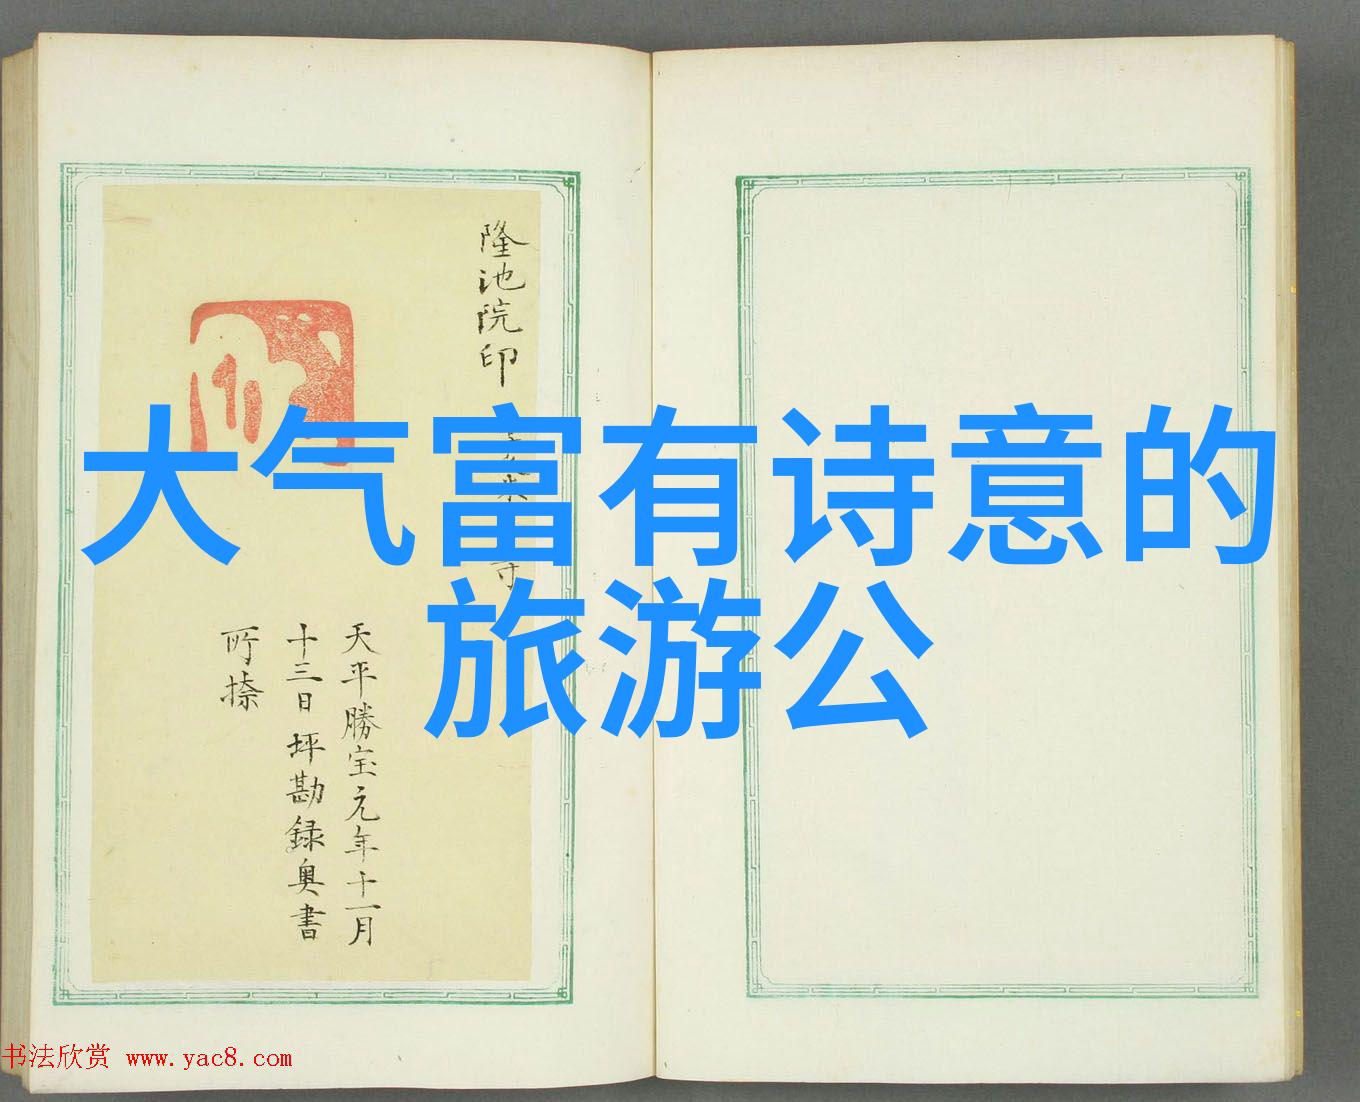 隆池院印
大气富有诗意的
旅游公
天平勝宝元年十一月
十三日坪勘録奥書
所捺
书法欣赏 www.yac8.com